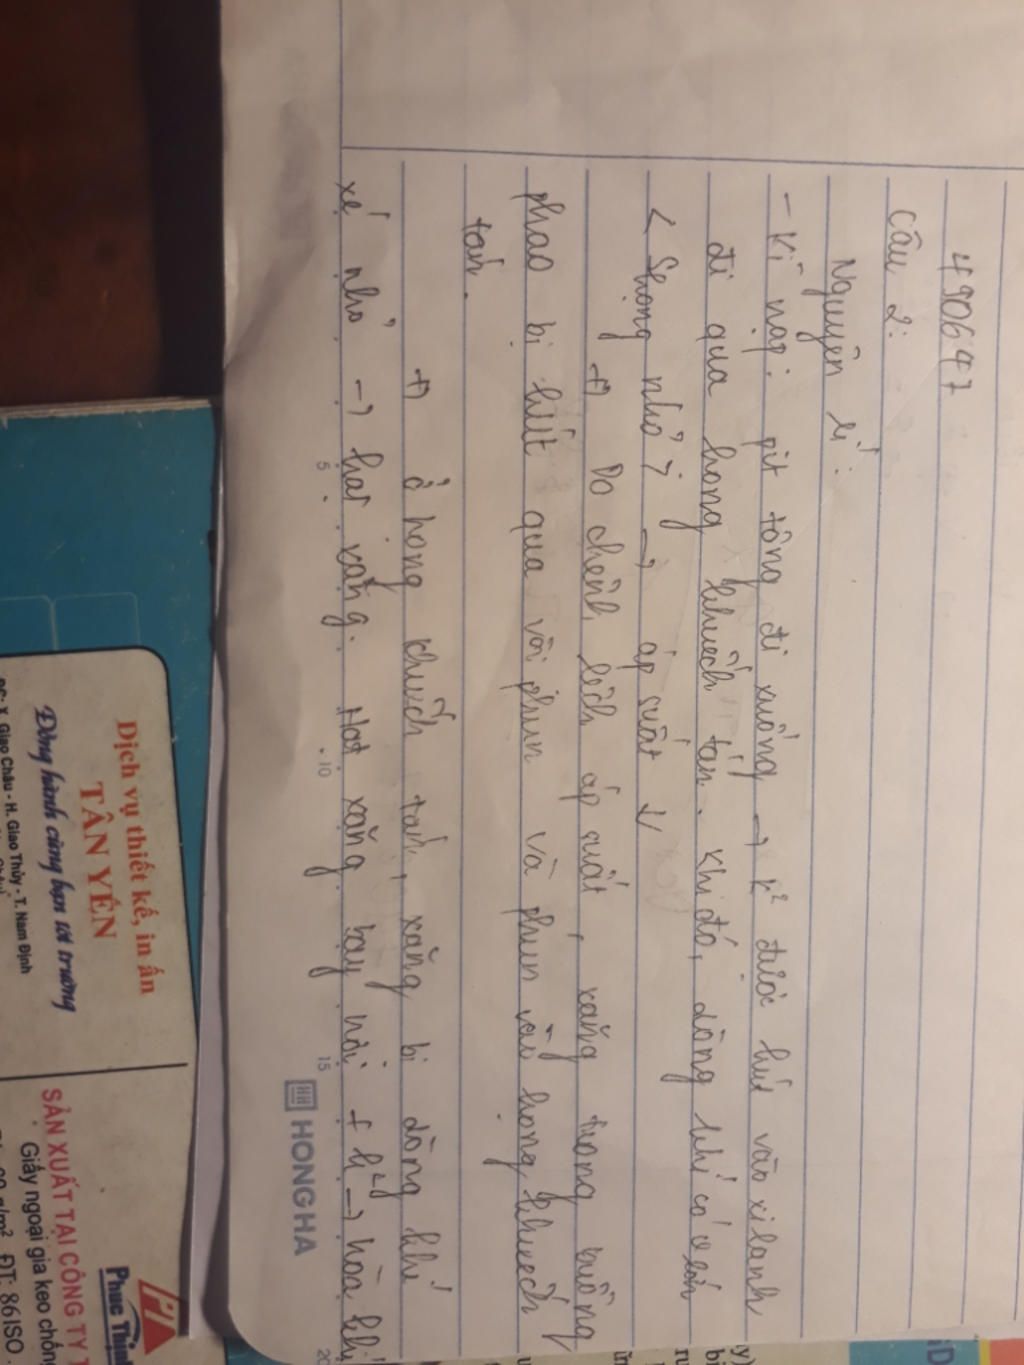 4906 47
Câu 2:
Nguyên lí:
- Kì nạp: pit tông đi xuống → k² được hút vào xilanh
đi qua họng khuếch tán. Khi đó, dòng khí có v lớn
< Họng nhỏ > → áp suất ↓
+) Do chênh lệch áp suất, xăng trong buồng
phao bị hút qua vòi phun và phun vào họng khuếch
tán.
+) ở họng khuếch tán, xăng bị dòng khí
xé nhỏ → hạt xăng. Hạt xăng bay hơi + k² → hòa khí
5 10 15 20
HH HONG HA
Dịch vụ thiết kế, in ấn
TÂN YẾN
Đồng hành cùng bạn tới trường
ĐC: X. Giao Châu - H. Giao Thủy - T. Nam Định
Phuc Thịnh
SẢN XUẤT TẠI CÔNG TY
Giấy ngoại gia keo chống
g/m² ĐT: 86ISO